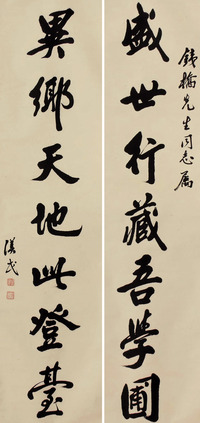 鐵橋先生同志屬
盛世行藏吾學圃
異鄉天地此登臺
漢民